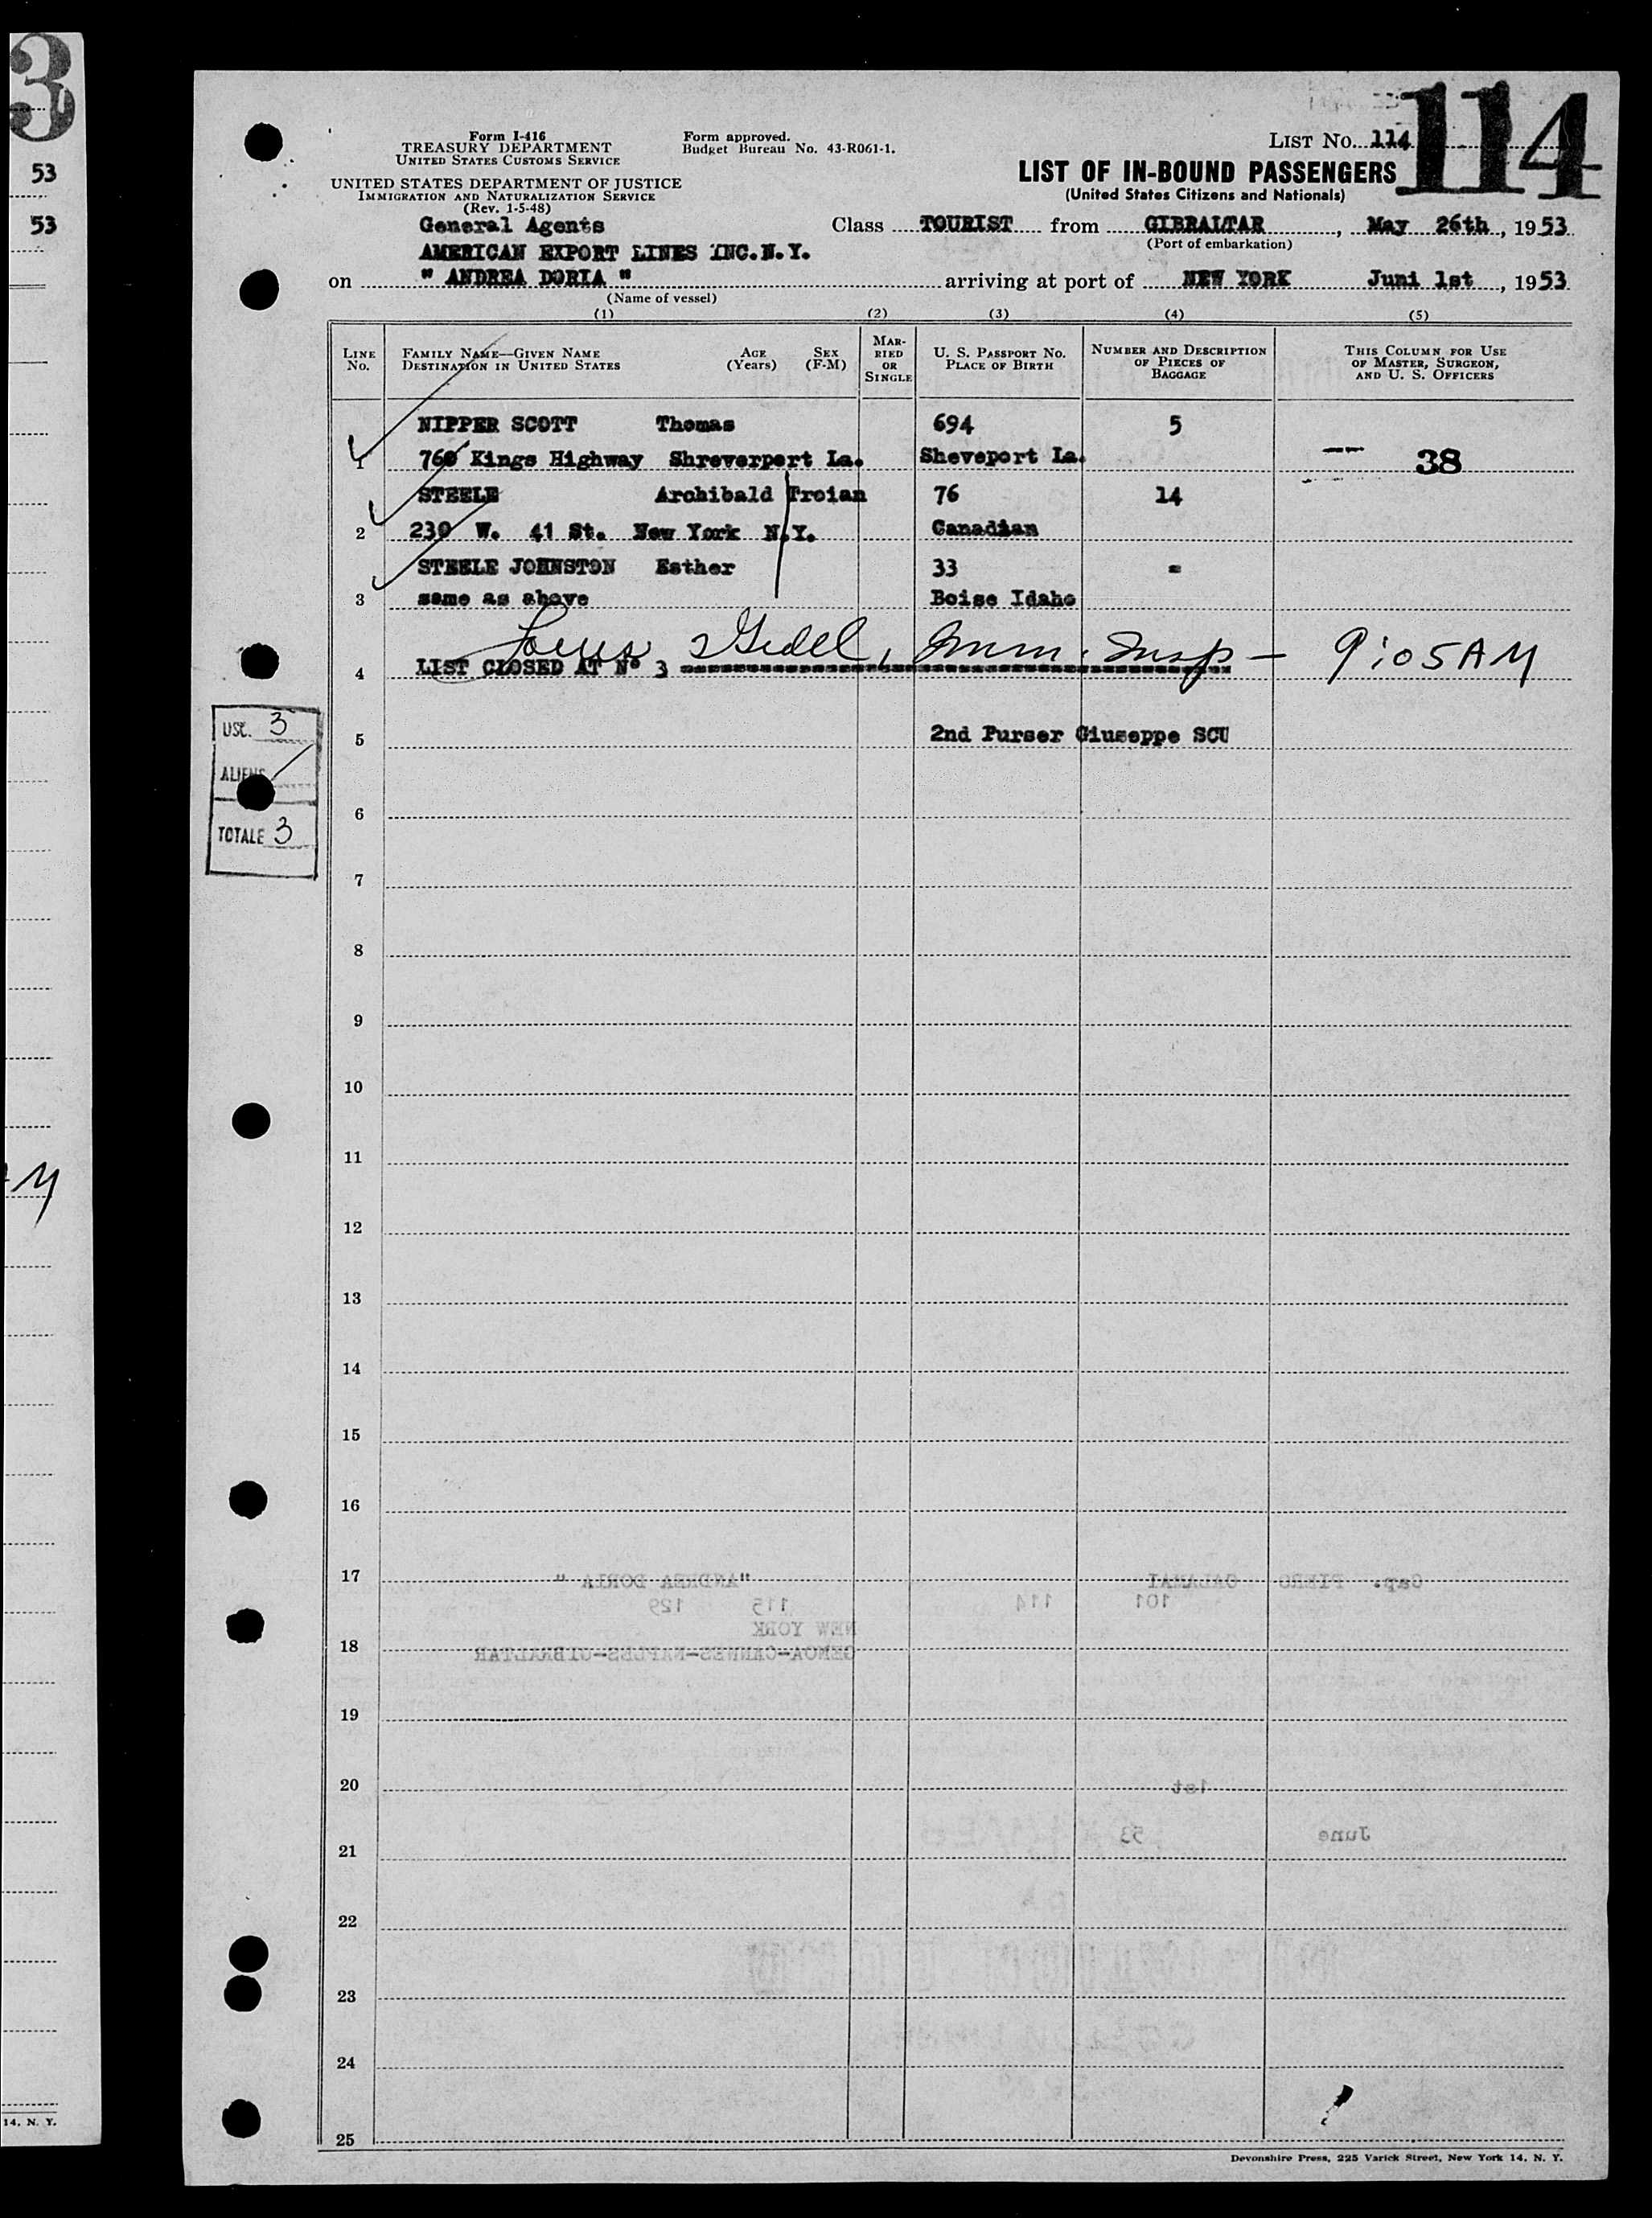 3
53
53
M
14, N. Y.
114
Form I-416
TREASURY DEPARTMENT
UNITED STATES CUSTOMS SERVICE
UNITED STATES DEPARTMENT OF JUSTICE
IMMIGRATION AND NATURALIZATION SERVICE
(Rev. 1-5-48)
Form approved.
Budget Bureau No. 43-R061-1.
LIST No. 114
LIST OF IN-BOUND PASSENGERS
(United States Citizens and Nationals)
General Agents
AMERICAN EXPORT LINES INC. N. Y.
Class TOURIST from GIBRALTAR, May 26th, 1953
(Port of embarkation)
on " ANDREA DORIA " arriving at port of NEW YORK Juni 1st, 1953
(Name of vessel)
(1) (2) (3) (4) (5)
LINE No.
FAMILY NAME—GIVEN NAME
DESTINATION IN UNITED STATES
AGE (Years)
SEX (F-M)
MARRIED OR SINGLE
U. S. PASSPORT NO.
PLACE OF BIRTH
NUMBER AND DESCRIPTION OF PIECES OF BAGGAGE
THIS COLUMN FOR USE OF MASTER, SURGEON, AND U. S. OFFICERS
NIPPER SCOTT Thomas 694 5
1 760 Kings Highway Shreverport La. Sheveport La. — 38
STEELE Archibald Troian 76 14
2 230 W. 41 St. New York N.Y. Canadian
STEELE JOHNSTON Esther 33 =
3 same as above Boise Idaho
Imm. Insp — 9:05 AM
4 LIST CLOSED AT Nº 3
USC. 3
ALIENS
TOTALE 3
5 2nd Purser Giuseppe SCU
6
7
8
9
10
11
12
13
14
15
16
17
"ANDREA DORIA" Cap. PIERO CALAMAI
115 129 114 101
NEW YORK
18
GENOA-CANNES-NAPLES-GIBRALTAR
19
20
1st
21
53 June
22
23
24
25
Devonshire Press, 225 Varick Street, New York 14, N. Y.